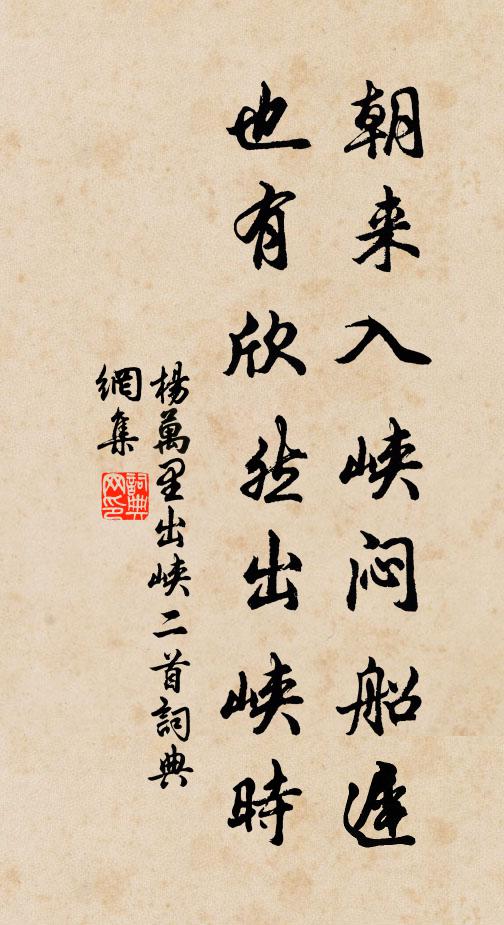 朝来入峡闷船遅
也有欣然出峡時
楊萬里出峡二首詞典
網集
詞典
网印